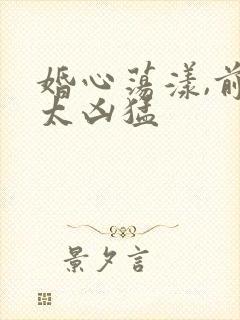 婚心荡漾,前
太凶猛
景夕言